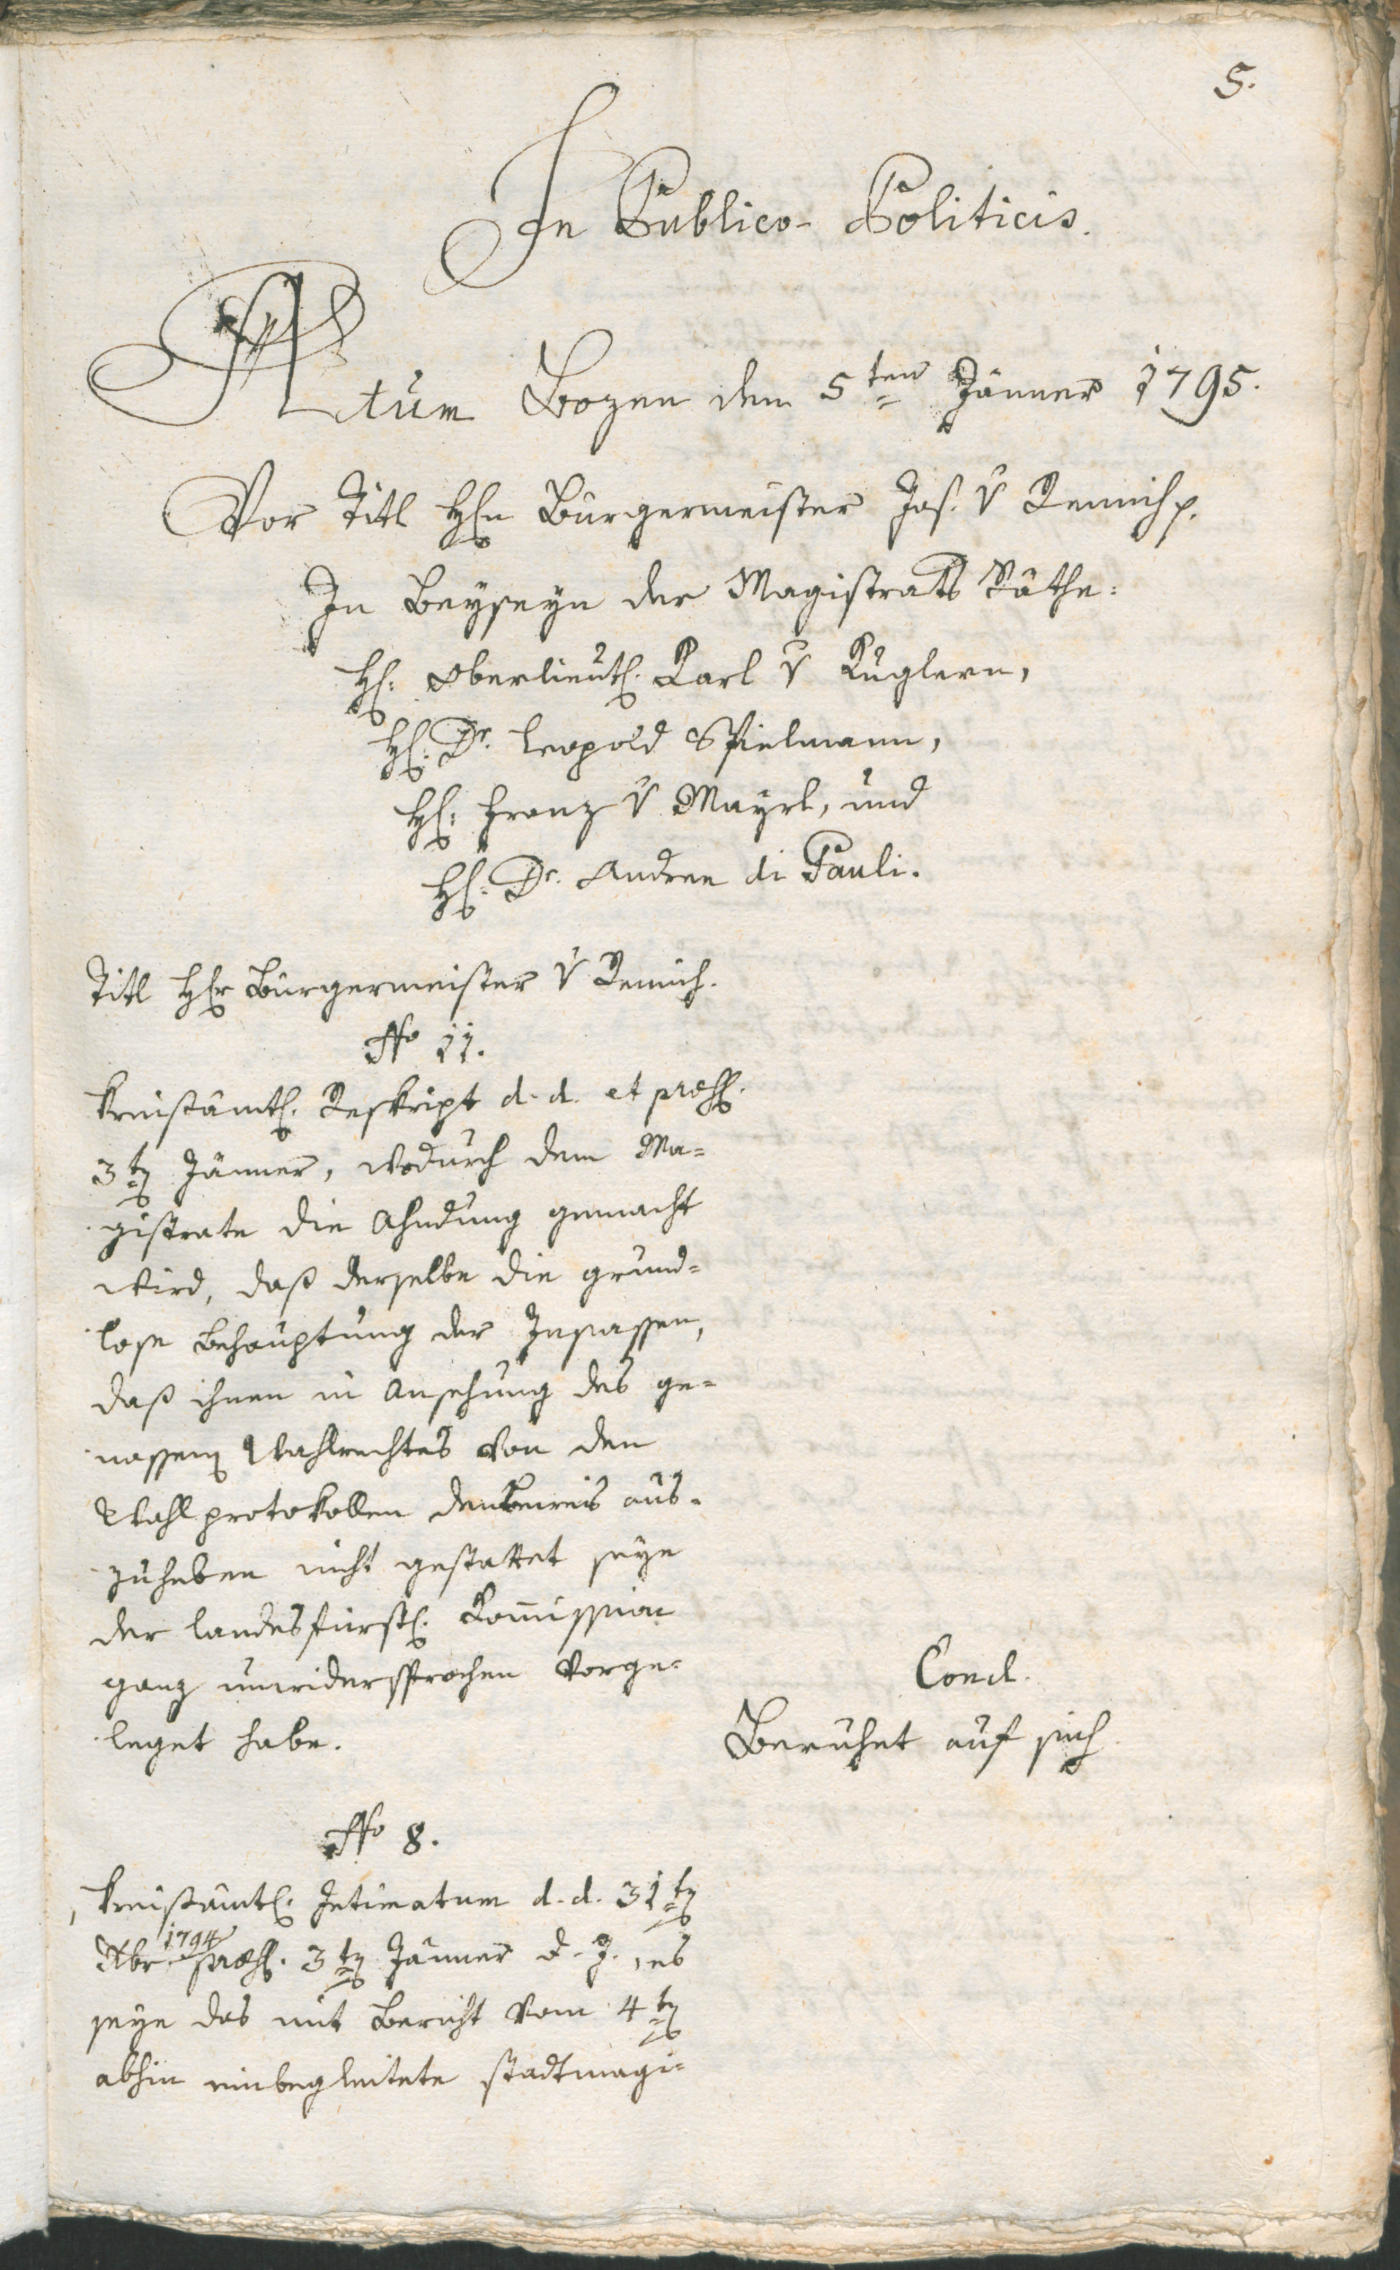 5.
In Publico-Politicis.
Actum Bozen dem 5ten Jänner 1795.
Vor Titl H̄ Bürgermeister Jos. v̄ Remich p.
In Beyseyn der Magistrats Räthe:
H: Oberlieutl. Karl v̄ Kuglern,
H: Dr. Leopold Spielmann,
H: Franz v̄ Mayrl, und
H: Dr. Andree di Pauli.
Titl Hr Bürgermeister v̄ Remich.
No 11.
Kreisämtl. Reskript d. d. et præs.
3ten Jänner, wodurch dem Ma=
gistrate die Ahndung gemacht
wird, daß derselbe die grund=
lose Behauptung der Insassen,
daß ihnen in Ansehung des ge=
nossenen Wahlrechtes von den
Wahlprotokollen den Beweis aus=
zuheben nicht gestattet seye
der landesfürstl. Kom̄ission
ganz unwidersprochen vorge=
leget habe.
Concl.
Beruhet auf sich
No 8.
Kreisämtl. Intimatum d. d. 31ten
Xbr 1794 præs. 3ten Jänner d. J., es
seye das mit Bericht vom 4ten
abhin einbegleitete stadtmagi=